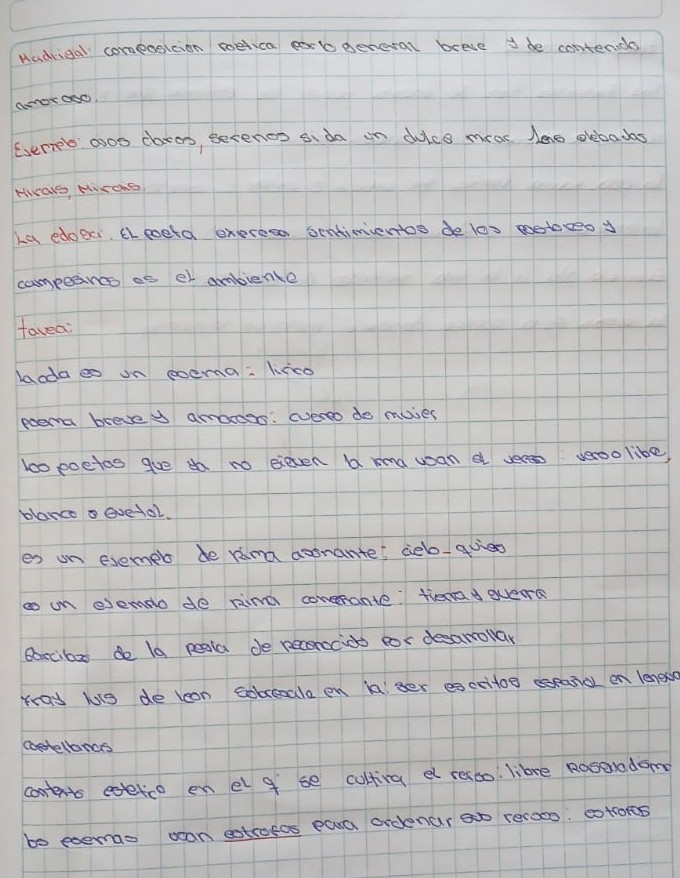 Madrigal: composicion poetica por lo general breve y de contenido
amoroso.
Ejemplo: ojos claros, serenos si da un dulce mirar
Mirais, Mirais.
La . El poeta expresa sentimientos de los pastores y
campesinos es el ambiente
tarea:
la oda es un poema: lirico
poema breve y amoroso: cuerpo de mujer
los poetas que ya no siguen la rima usan el verso: verso libre,
blanco o suelto.
es un ejemplo de rima asonante: cielo - quiero
es un ejemplo de rima consonante: tierra y guerra
de la poesia de reconocido por desarrollar
Fray luis de leon sobresale en la: ser escritos español en lengua
castellanas
contexto estetico en el q' se cultiva el verso: libre
los poemas usan estrofas para ordenar sus versos: estrofas